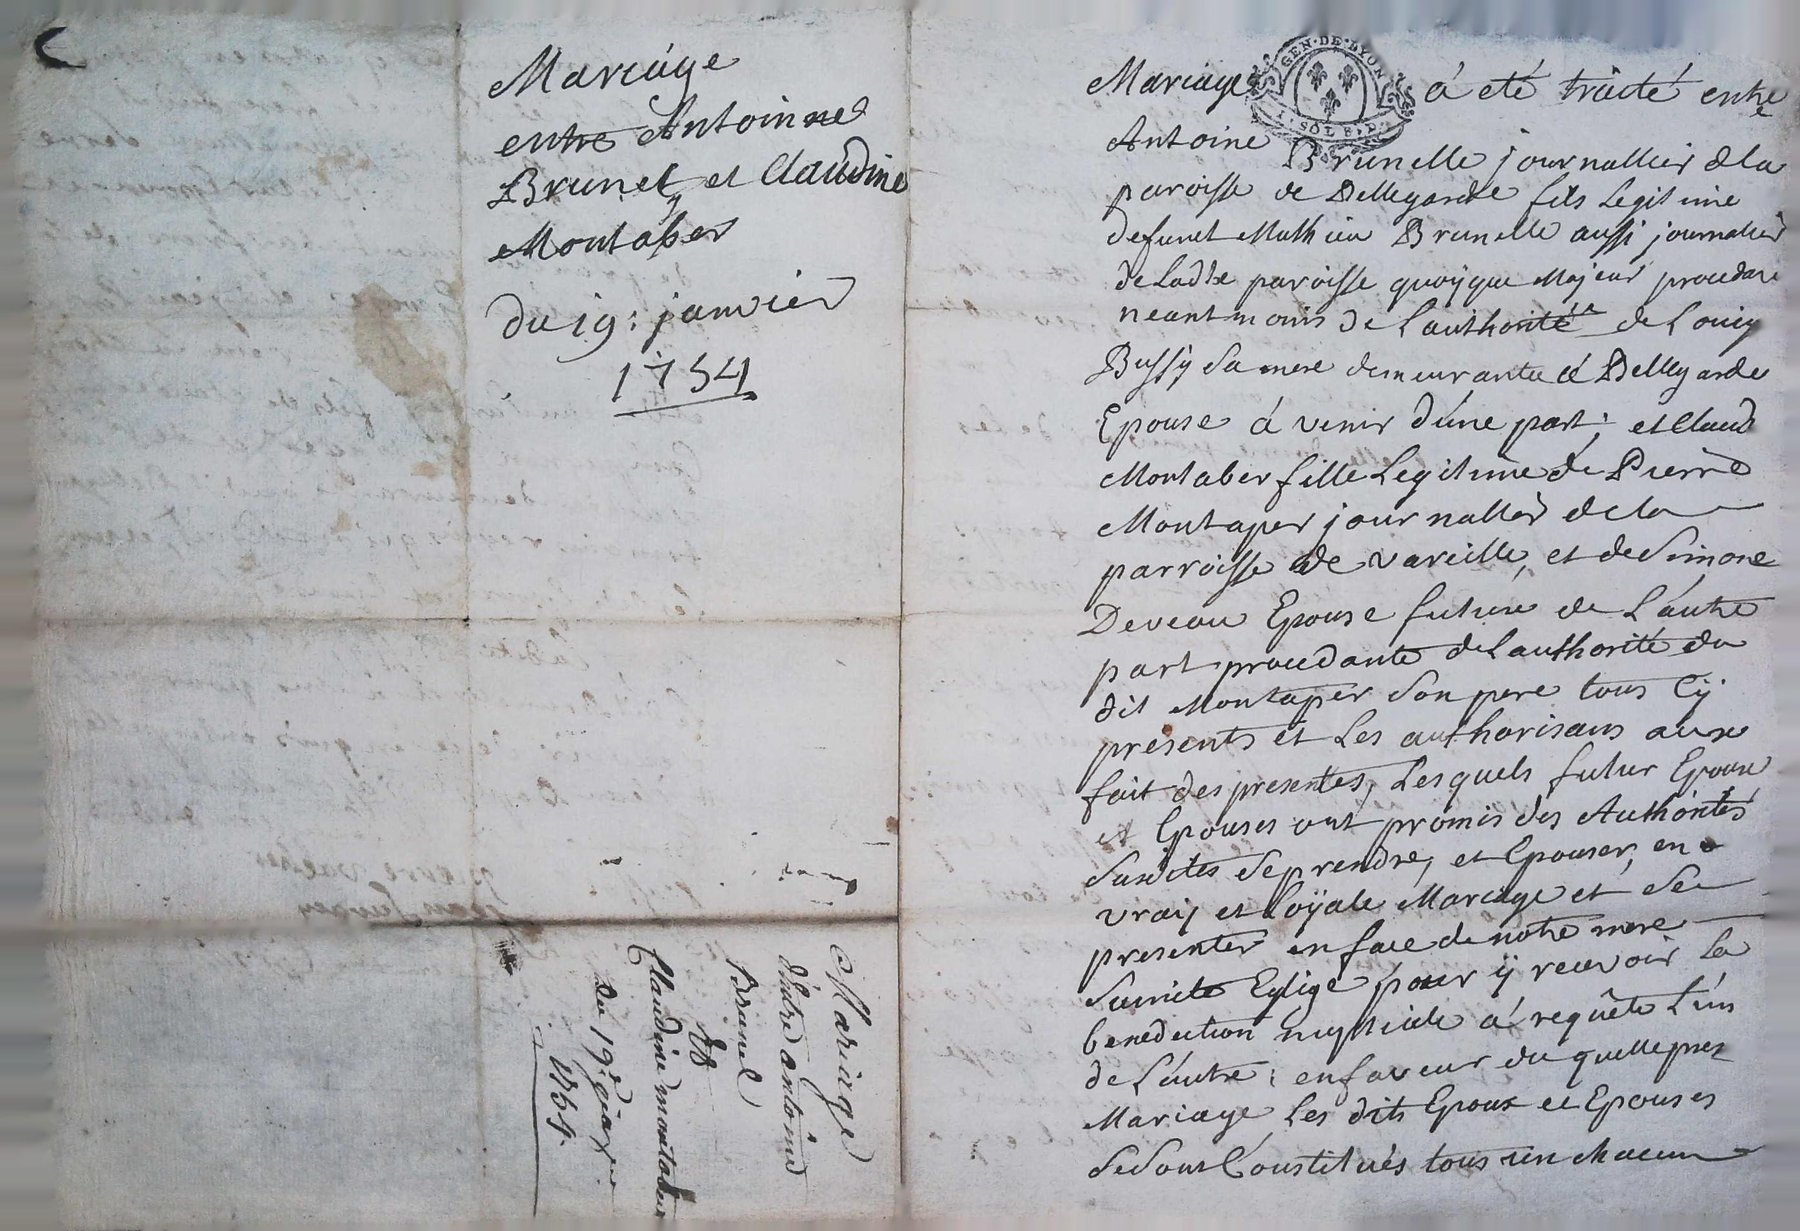 Mariage
entre Antoinne
Brunet et Claudine
Montaber
du 19: janvier
1754
Mariage
d'entre antoine
Brunel
et
Claudine montaber
du 19e janv.
1754.
GEN·DE·LYON
1·SOL 8·D
Mariage á eté traité entre
Antoine Brunelle journallier de la
paroisse de Bellegarde fils Legitime
defunct Mathieu Brunelle aussi journalier
de Ladte paroisse quoÿque Majeur procedant
neantmoins de Lauthorité de Louise
Bussy Sa mere demeurante á Bellegarde
Epouse á venir d'une part; et Claud
Montaber fille Legitime de Pierre
Montaper journallier de la
parroisse de vareille, et de Simone
Deveau Epouse future de L'autre
part procedante de Lauthorité du
dit Montaper Son pere tous Cÿ
presents et Les authorisans aux
fait des presentes, Lesquels futur Epoux
et Epouses ont promis des Authorités
Susdites Se prendre, et Epouser, en
vraÿ et Loÿale Mariage et Se
presenter en face de notre mere
Saincte Eglise pour ÿ recevoir La
benediction nuptiale á requête L'un
de L'autre; en faveur du quelle pnt
Mariage Les dits Epoux et Epouses
Se Sont Constitués tous un chacun